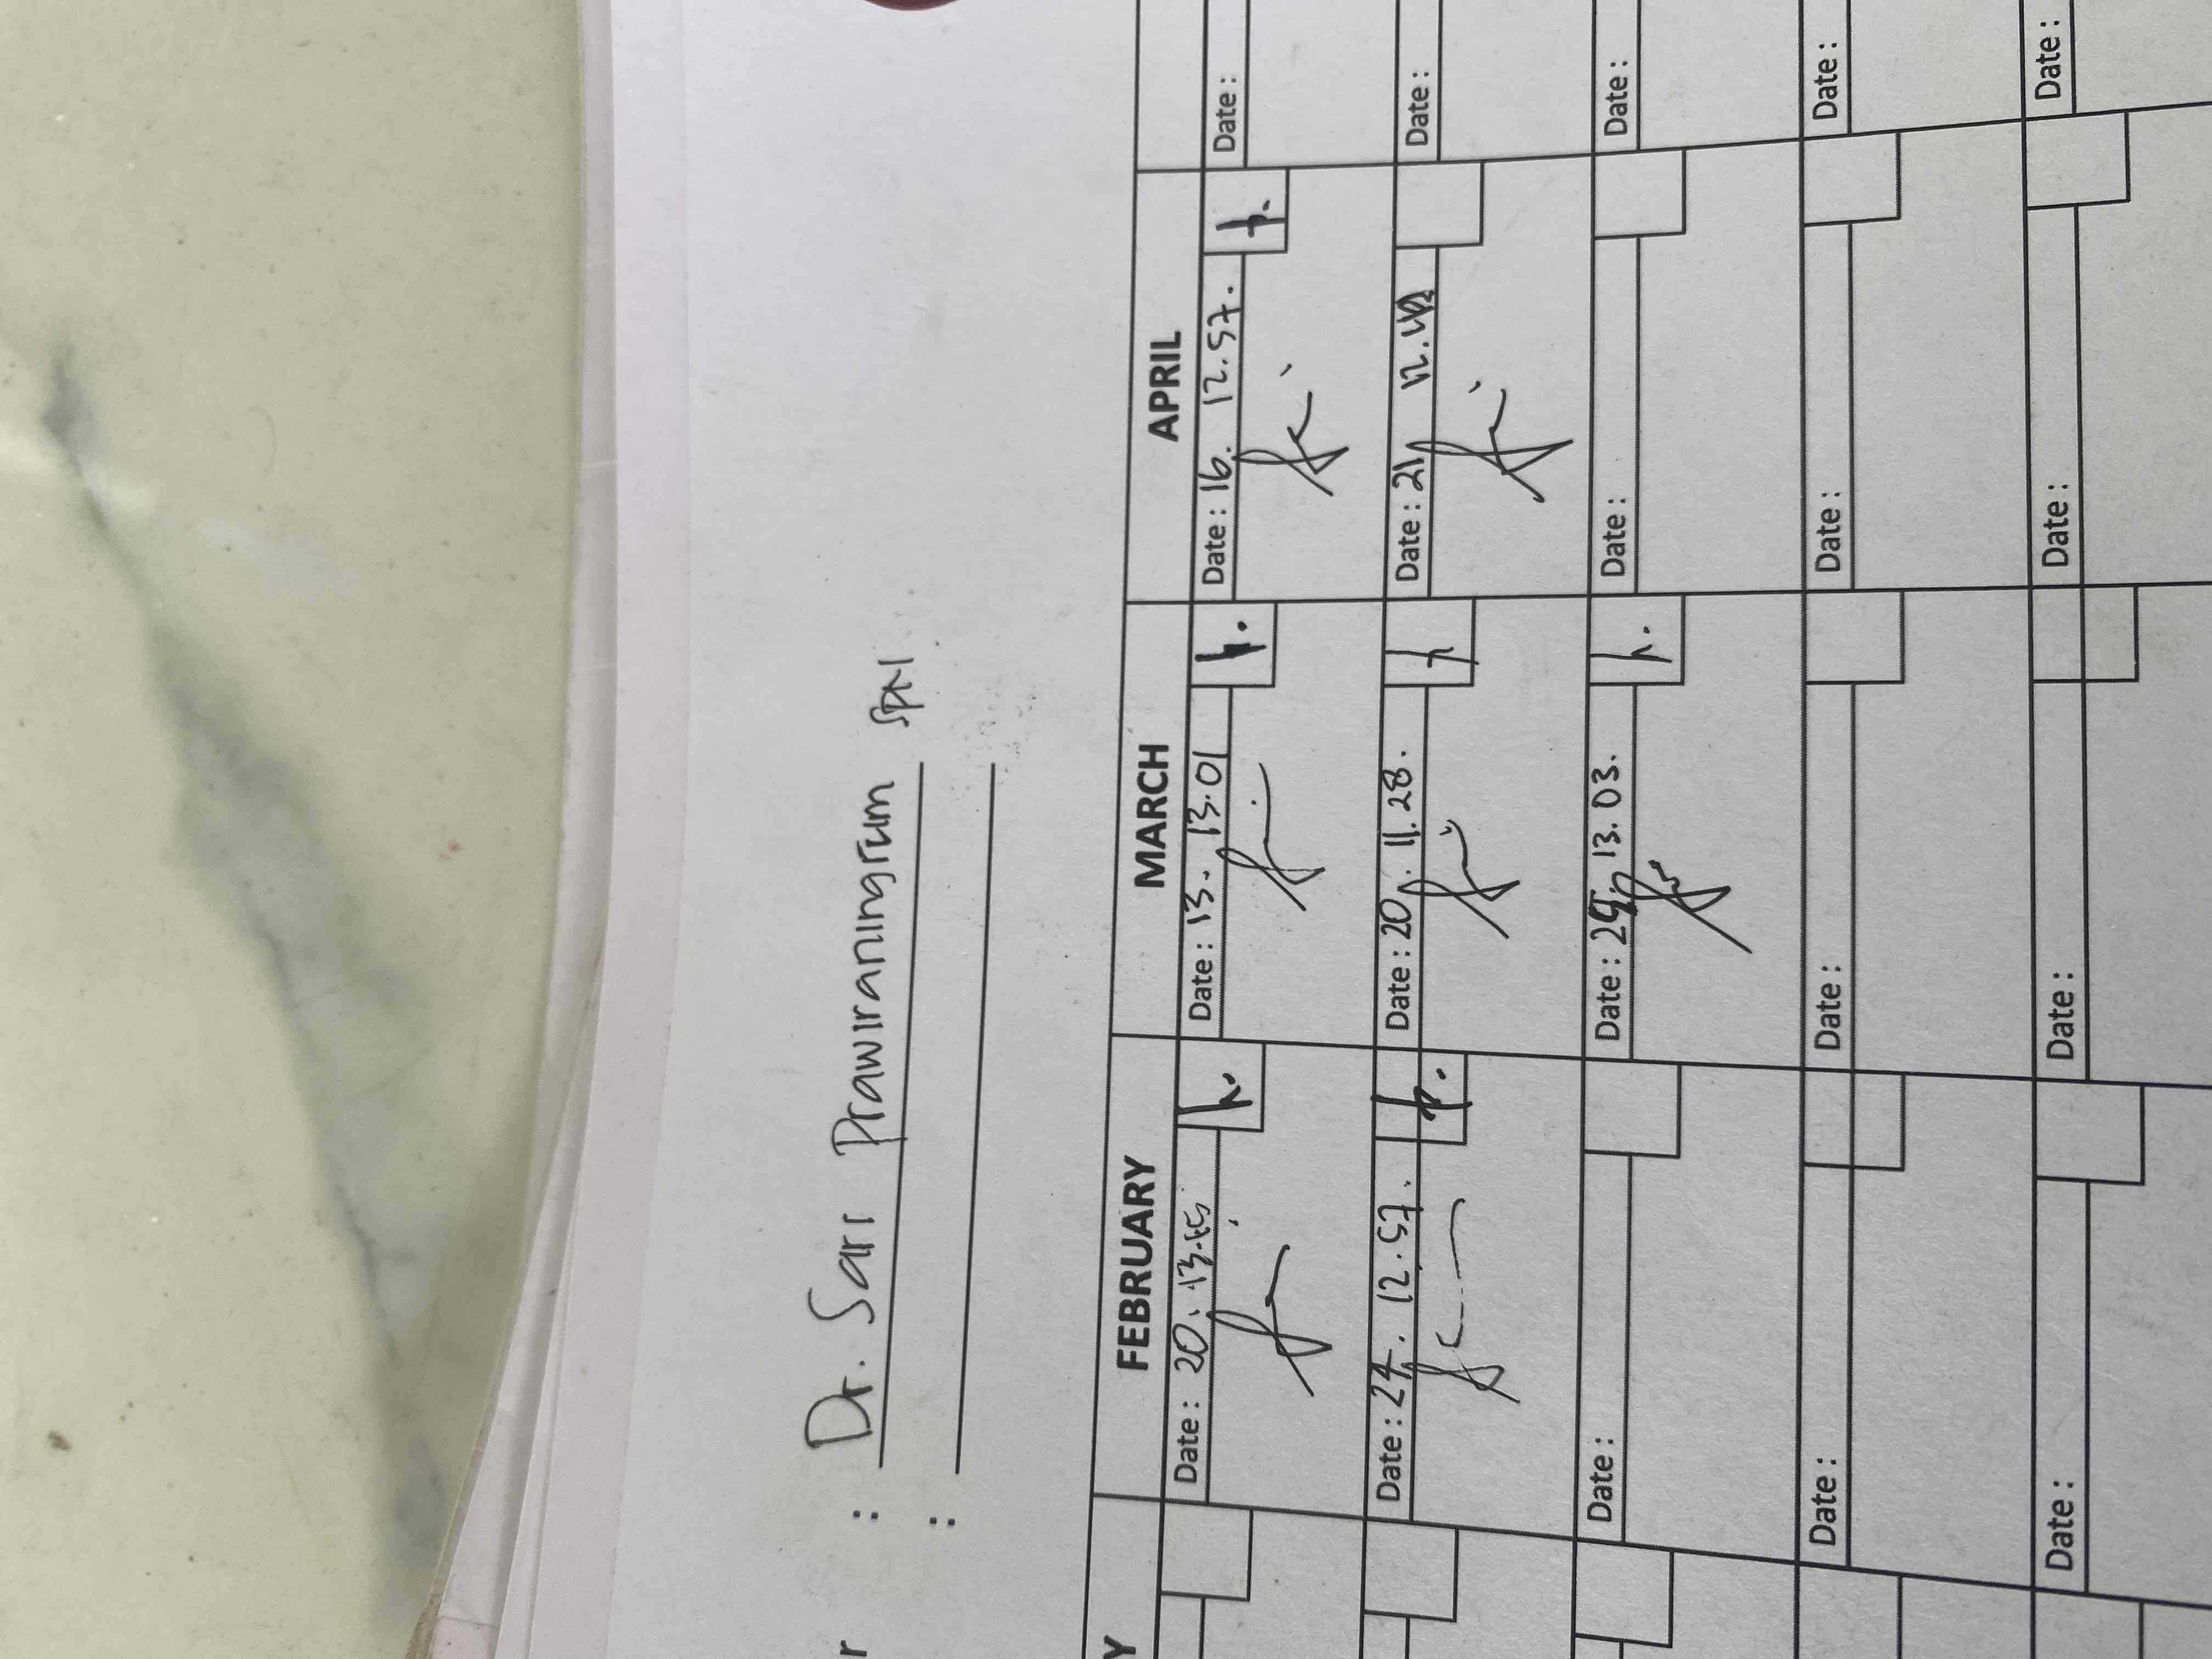 r : Dr. Sari Prawiraningrum SpN.
:
Y FEBRUARY MARCH APRIL
Date : 20. Date : 13. 13.01 Date : 16. 12.57. Date :
Date : 24. 12.57. Date : 20. 11.28. Date : 21 Date :
Date : Date : 13.03. Date : Date :
Date : Date : Date : Date :
Date : Date : Date : Date :